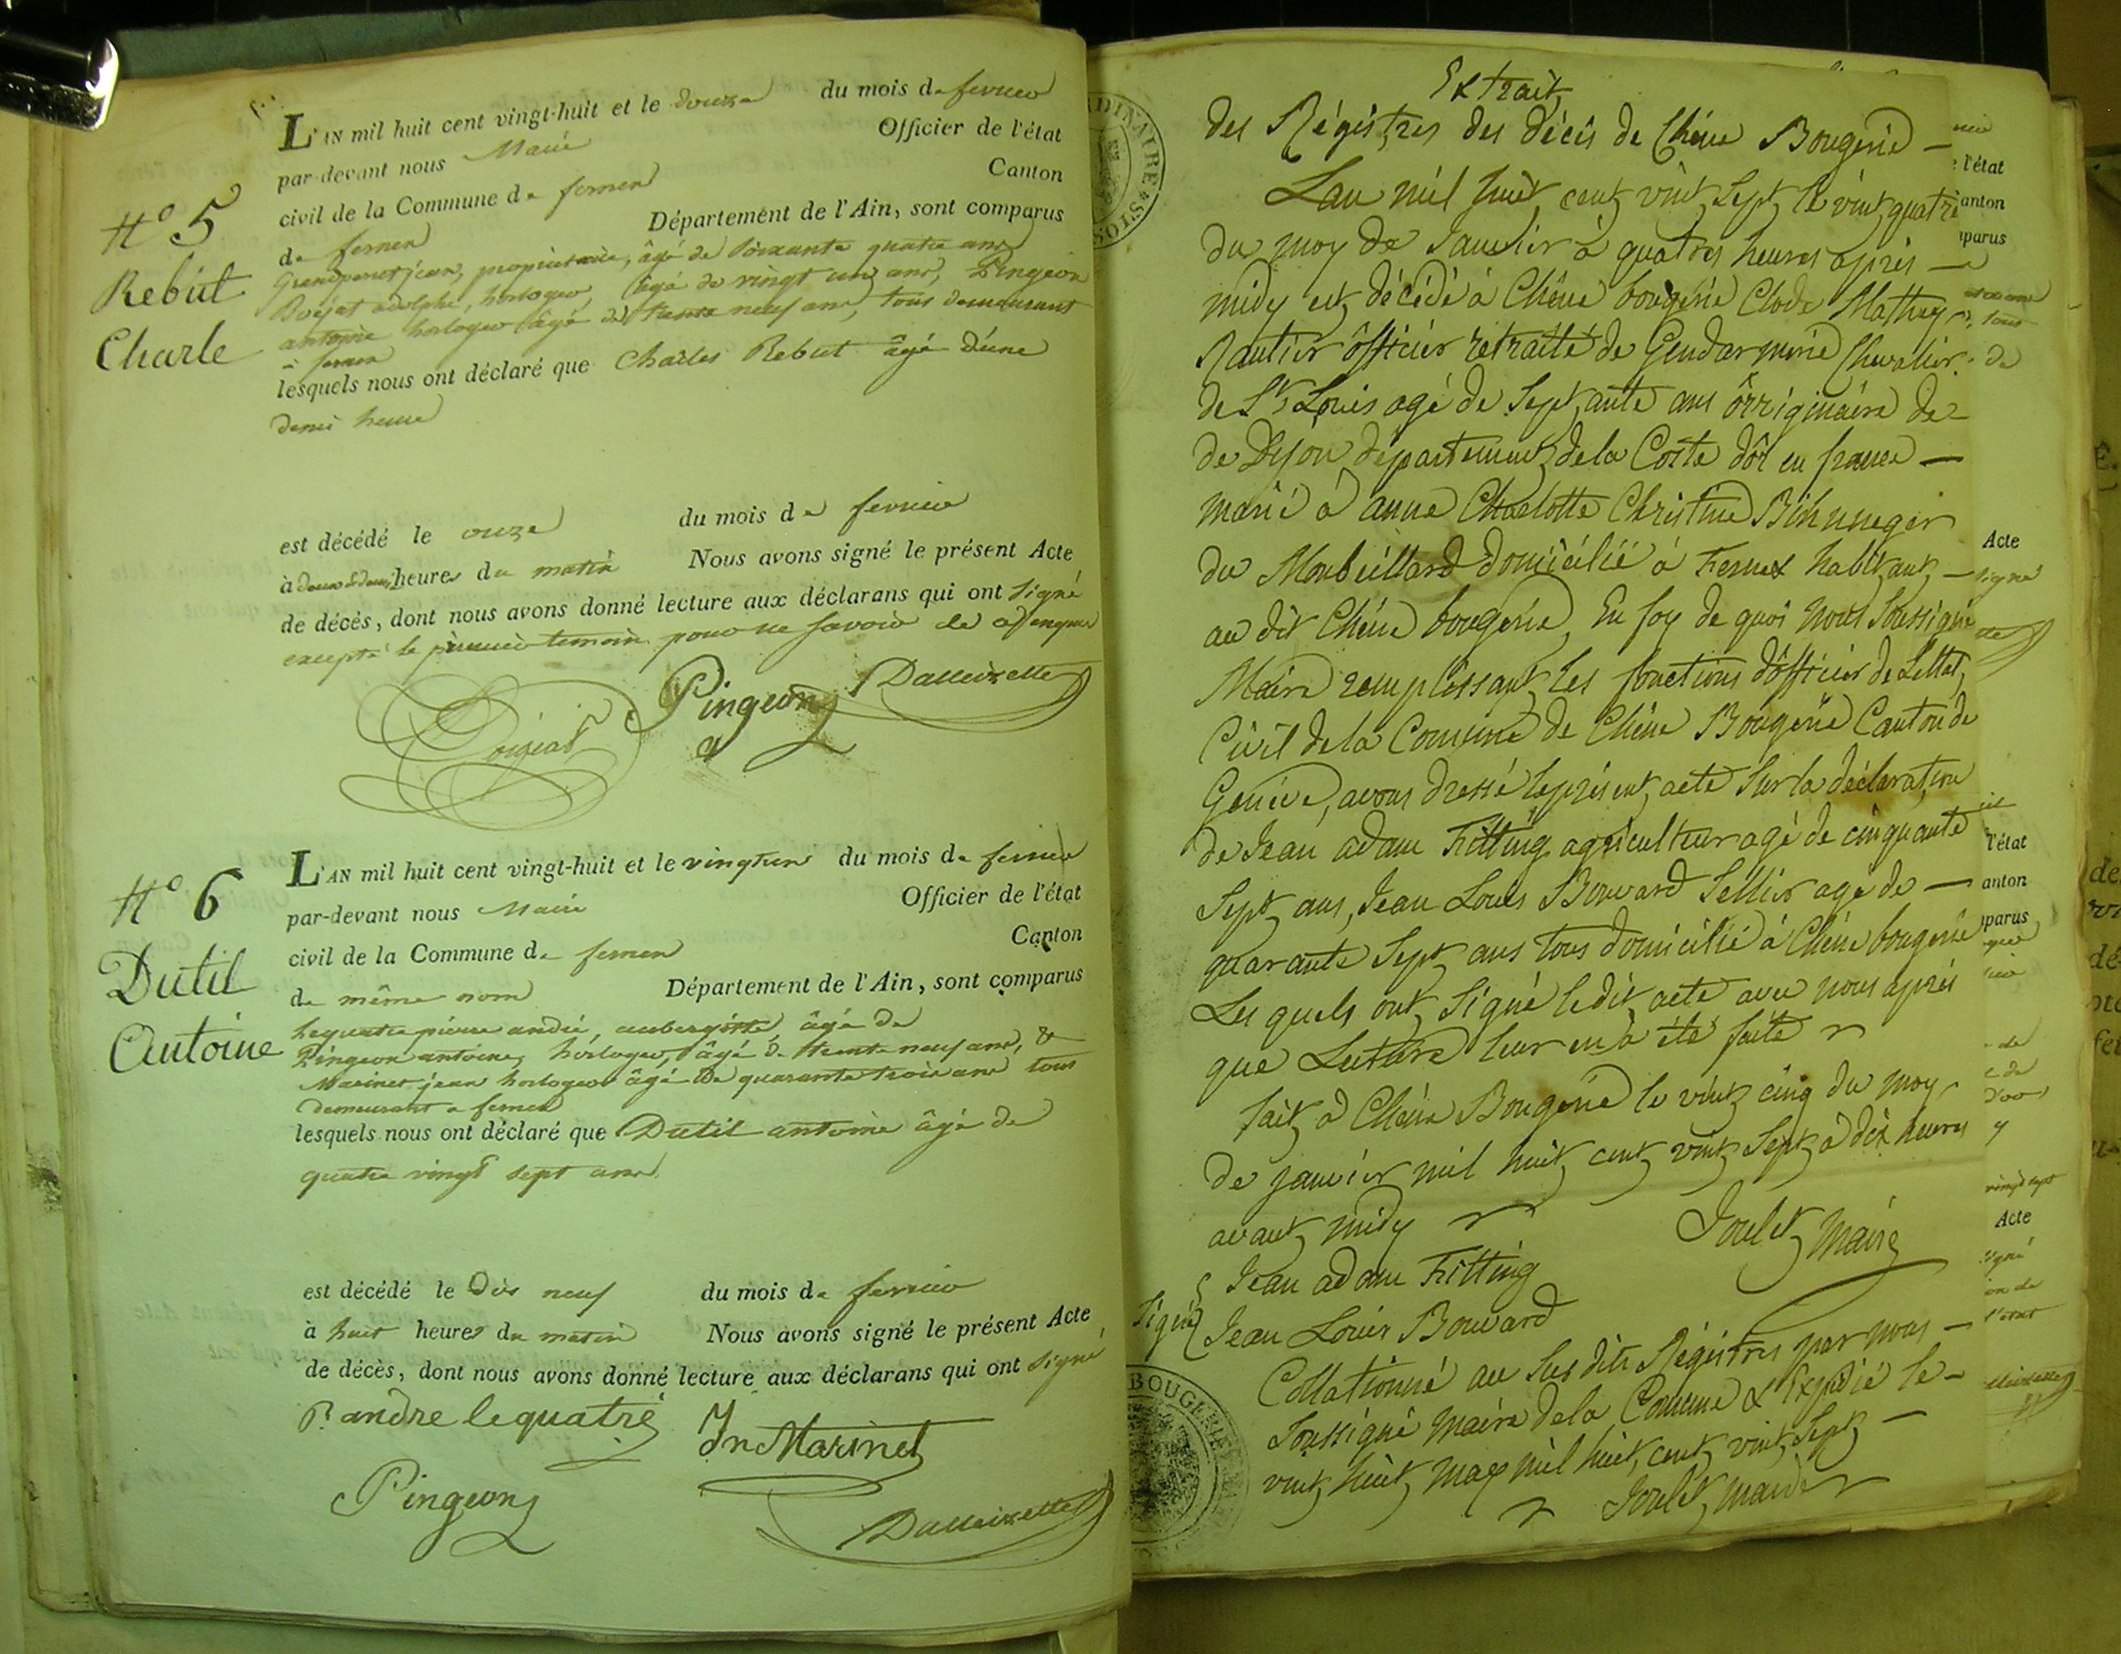 L'AN mil huit cent vingt-huit et le douze du mois de fevrier
par-devant nous Maire Officier de l'état
civil de la Commune de fernex Canton
de fernex Département de l'Ain, sont comparus
jean, propriétaire, âgé de Soixante quatre ans
adolphe, horloger, âgé de vingt ans, Pingeon
antoine horloger âgé de trente neuf ans, tous demeurant
à fernex
lesquels nous ont déclaré que Charles Rebut âgé d'une
demi heure
est décédé le onze du mois de fevrier
à heures du matin Nous avons signé le présent Acte
de décès, dont nous avons donné lecture aux déclarans qui ont signé
excepté le premier temoin pour ne savoir de ce enquis
Pingeon
N° 5
Rebut
Charle
L'AN mil huit cent vingt-huit et le vingtun du mois de fevrier
par-devant nous Maire Officier de l'état
civil de la Commune de fernex Canton
de même nom Département de l'Ain, sont comparus
Lequatre pierre andré, aubergiste, âgé de
Pingeon antoine, horloger, âgé de trente neuf ans, &
Marinet jean horloger âgé de quarante trois ans tous
demeurant a fernex
lesquels nous ont déclaré que Dutil antoine âgé de
quatre vingt sept ans
est décédé le Dix neuf du mois de fevrier
à huit heures du matin Nous avons signé le présent Acte
de décès, dont nous avons donné lecture aux déclarans qui ont signé
P. andre lequatre Jn Marinet
Pingeon
N° 6
Dutil
Antoine
Extrait
des Régistres des décès de Chêne Bougerie
Lan mil huit cent vint Sept le vint quatre
du moy de Janvier à quatres heures après
midy est décédé à Chêne bougerie Clode Mathey
Nautier ôfficier retraité de Gendarmerie Chevalier
de St Louis agé de Septante ans ôrriginaire de
de Dijon département de la Coste dôr en france
marié à anne Charlotte Christine
du Monbeillard domicilié à Fernex habitant
au dit Chêne bougerie, En foy de quoi Nous Soussigné
Maire remplissant les fonctions dôfficier de Lettat
Civil de la Comune de Chêne Bougerie Canton de
Genève, avons dressé le présent acte Sur la déclaration
de Jean adam Fitting agriculteur agé de cinquante
Sept ans, Jean Louis Bouvard Sellier agé de
quarante Sept ans tous domicilié à Chêne bougerie
Les quels ont Signé le dit acte avec nous après
que Lecture leur en à été faite
fait à Chêne Bougerie le vint cinq du moy
de janvier mil huit cent vint Sept à dix heures
avant midy
Maire
Signé Jean adam Fitting
Jean Louis Bouvard
Collationné au Sus dits Régistres par nous
Soussigné Maire de la Comune & Expédié le
vint huit may mil huit cent vint Sept
maire
l'état
anton
parus
Acte
signé
l'état
anton
parus
vingt sept
Acte
signé